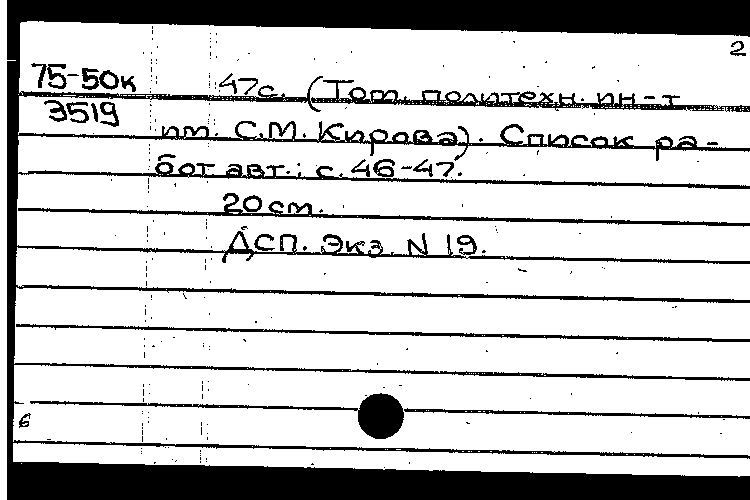 2
75-50к 47с. (Том. политехн. ин-т
3519 им. С.М. Кирова). Список ра-
бот авт.: с. 46-47.
20 см.
ДСП. Экз. N 19.
6